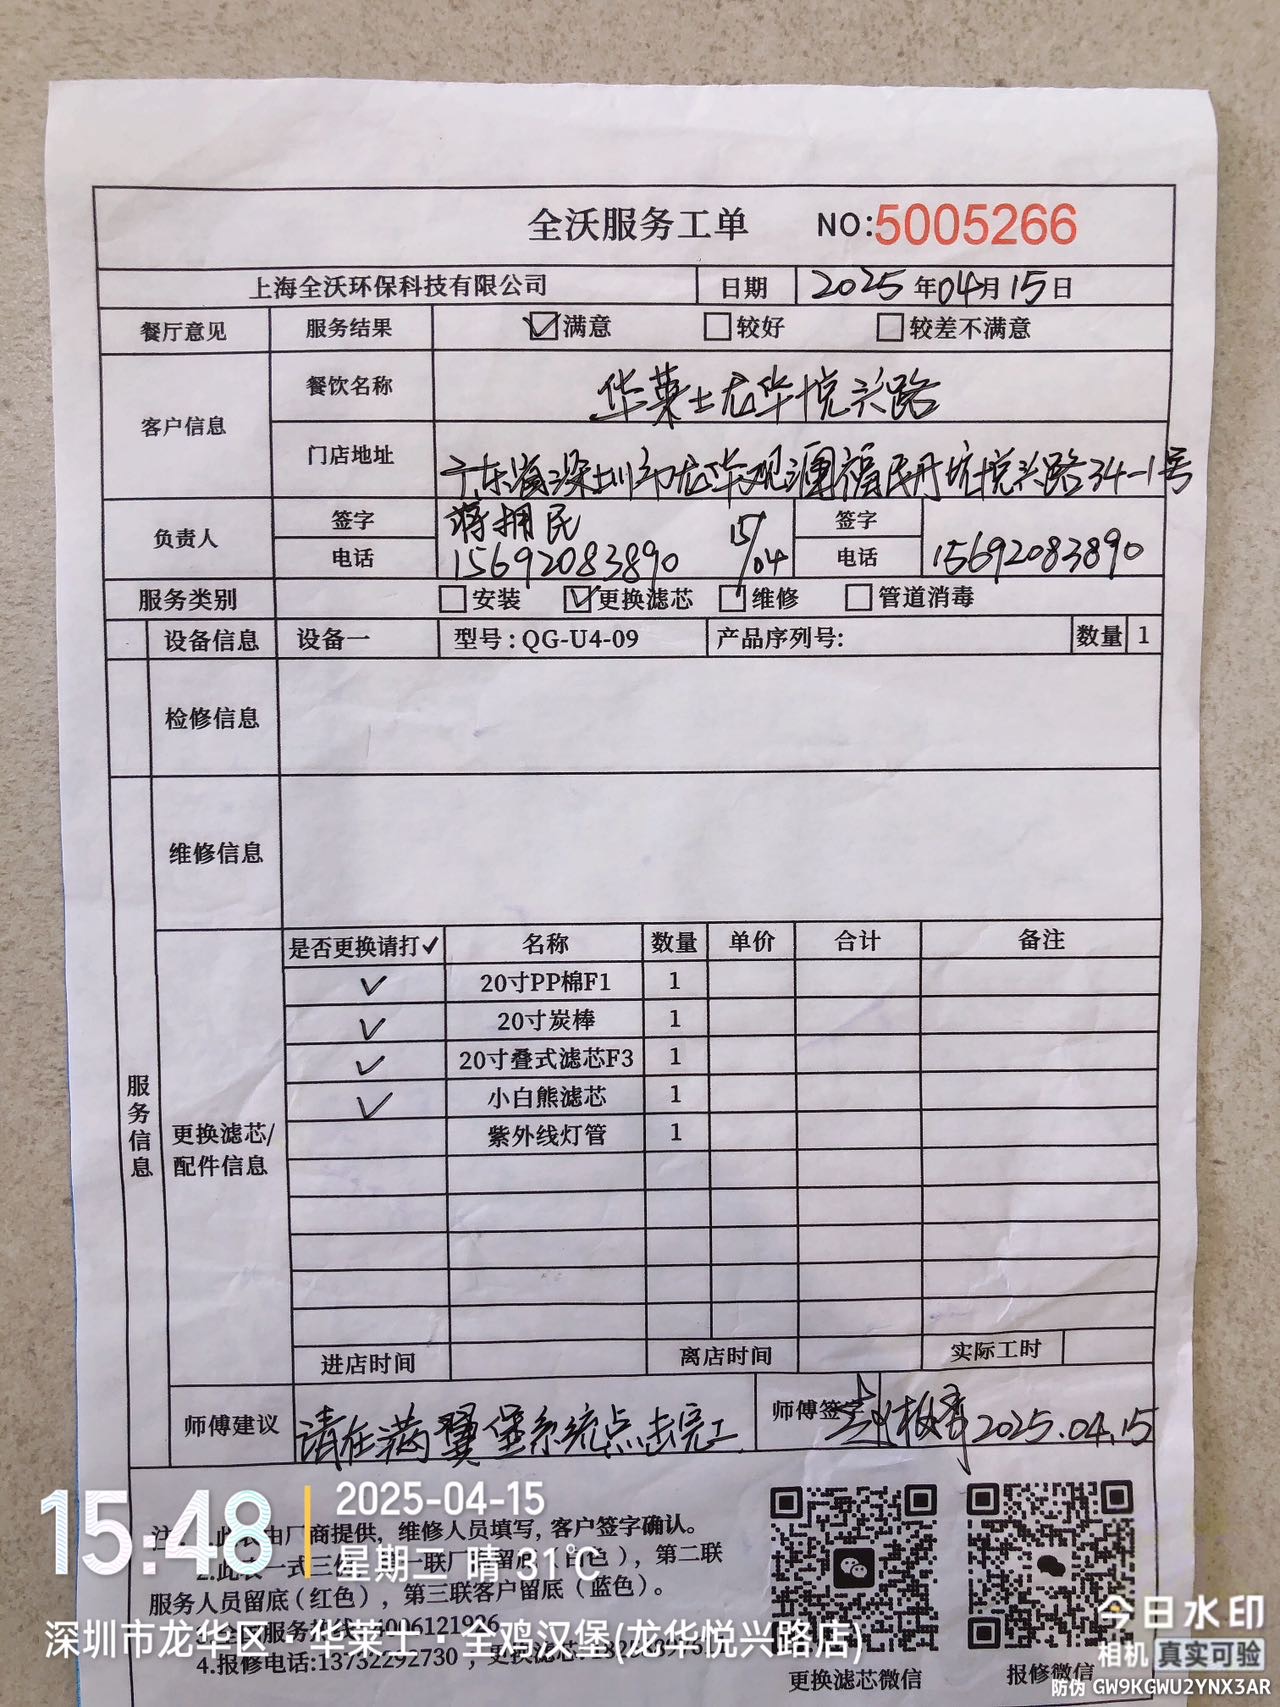 全沃服务工单 NO:5005266
上海全沃环保科技有限公司 日期 2025年04月15日
餐厅意见 服务结果 满意 较好 较差不满意
客户信息 餐饮名称 华莱士龙华悦兴路
门店地址 广东省深圳市龙华观澜福民丹坑悦兴路34-1号
负责人 签字 蒋拥民 15/04 签字
电话 15692083890 电话 15692083890
服务类别 安装 更换滤芯 维修 管道消毒
设备信息 设备一 型号:QG-U4-09 产品序列号: 数量 1
检修信息
服务信息
维修信息
更换滤芯/配件信息
是否更换请打✓ 名称 数量 单价 合计 备注
✓ 20寸PP棉F1 1
✓ 20寸炭棒 1
✓ 20寸叠式滤芯F3 1
✓ 小白熊滤芯 1
紫外线灯管 1
进店时间 离店时间 实际工时
师傅建议 请在满翼堡系统点击完工 师傅签字 2025.04.15
由厂商提供, 维修人员填写, 客户签字确认。
2.此表一式三 第二联
服务人员留底(红色), 第三联客户留底(蓝色)。
4.报修电话:13732292730
更换滤芯微信 报修微信
15:48
2025-04-15
星期二 晴 31℃
深圳市龙华区·华莱士·全鸡汉堡(龙华悦兴路店)
今日水印
相机 真实可验
防伪 GW9KGWU2YNX3AR